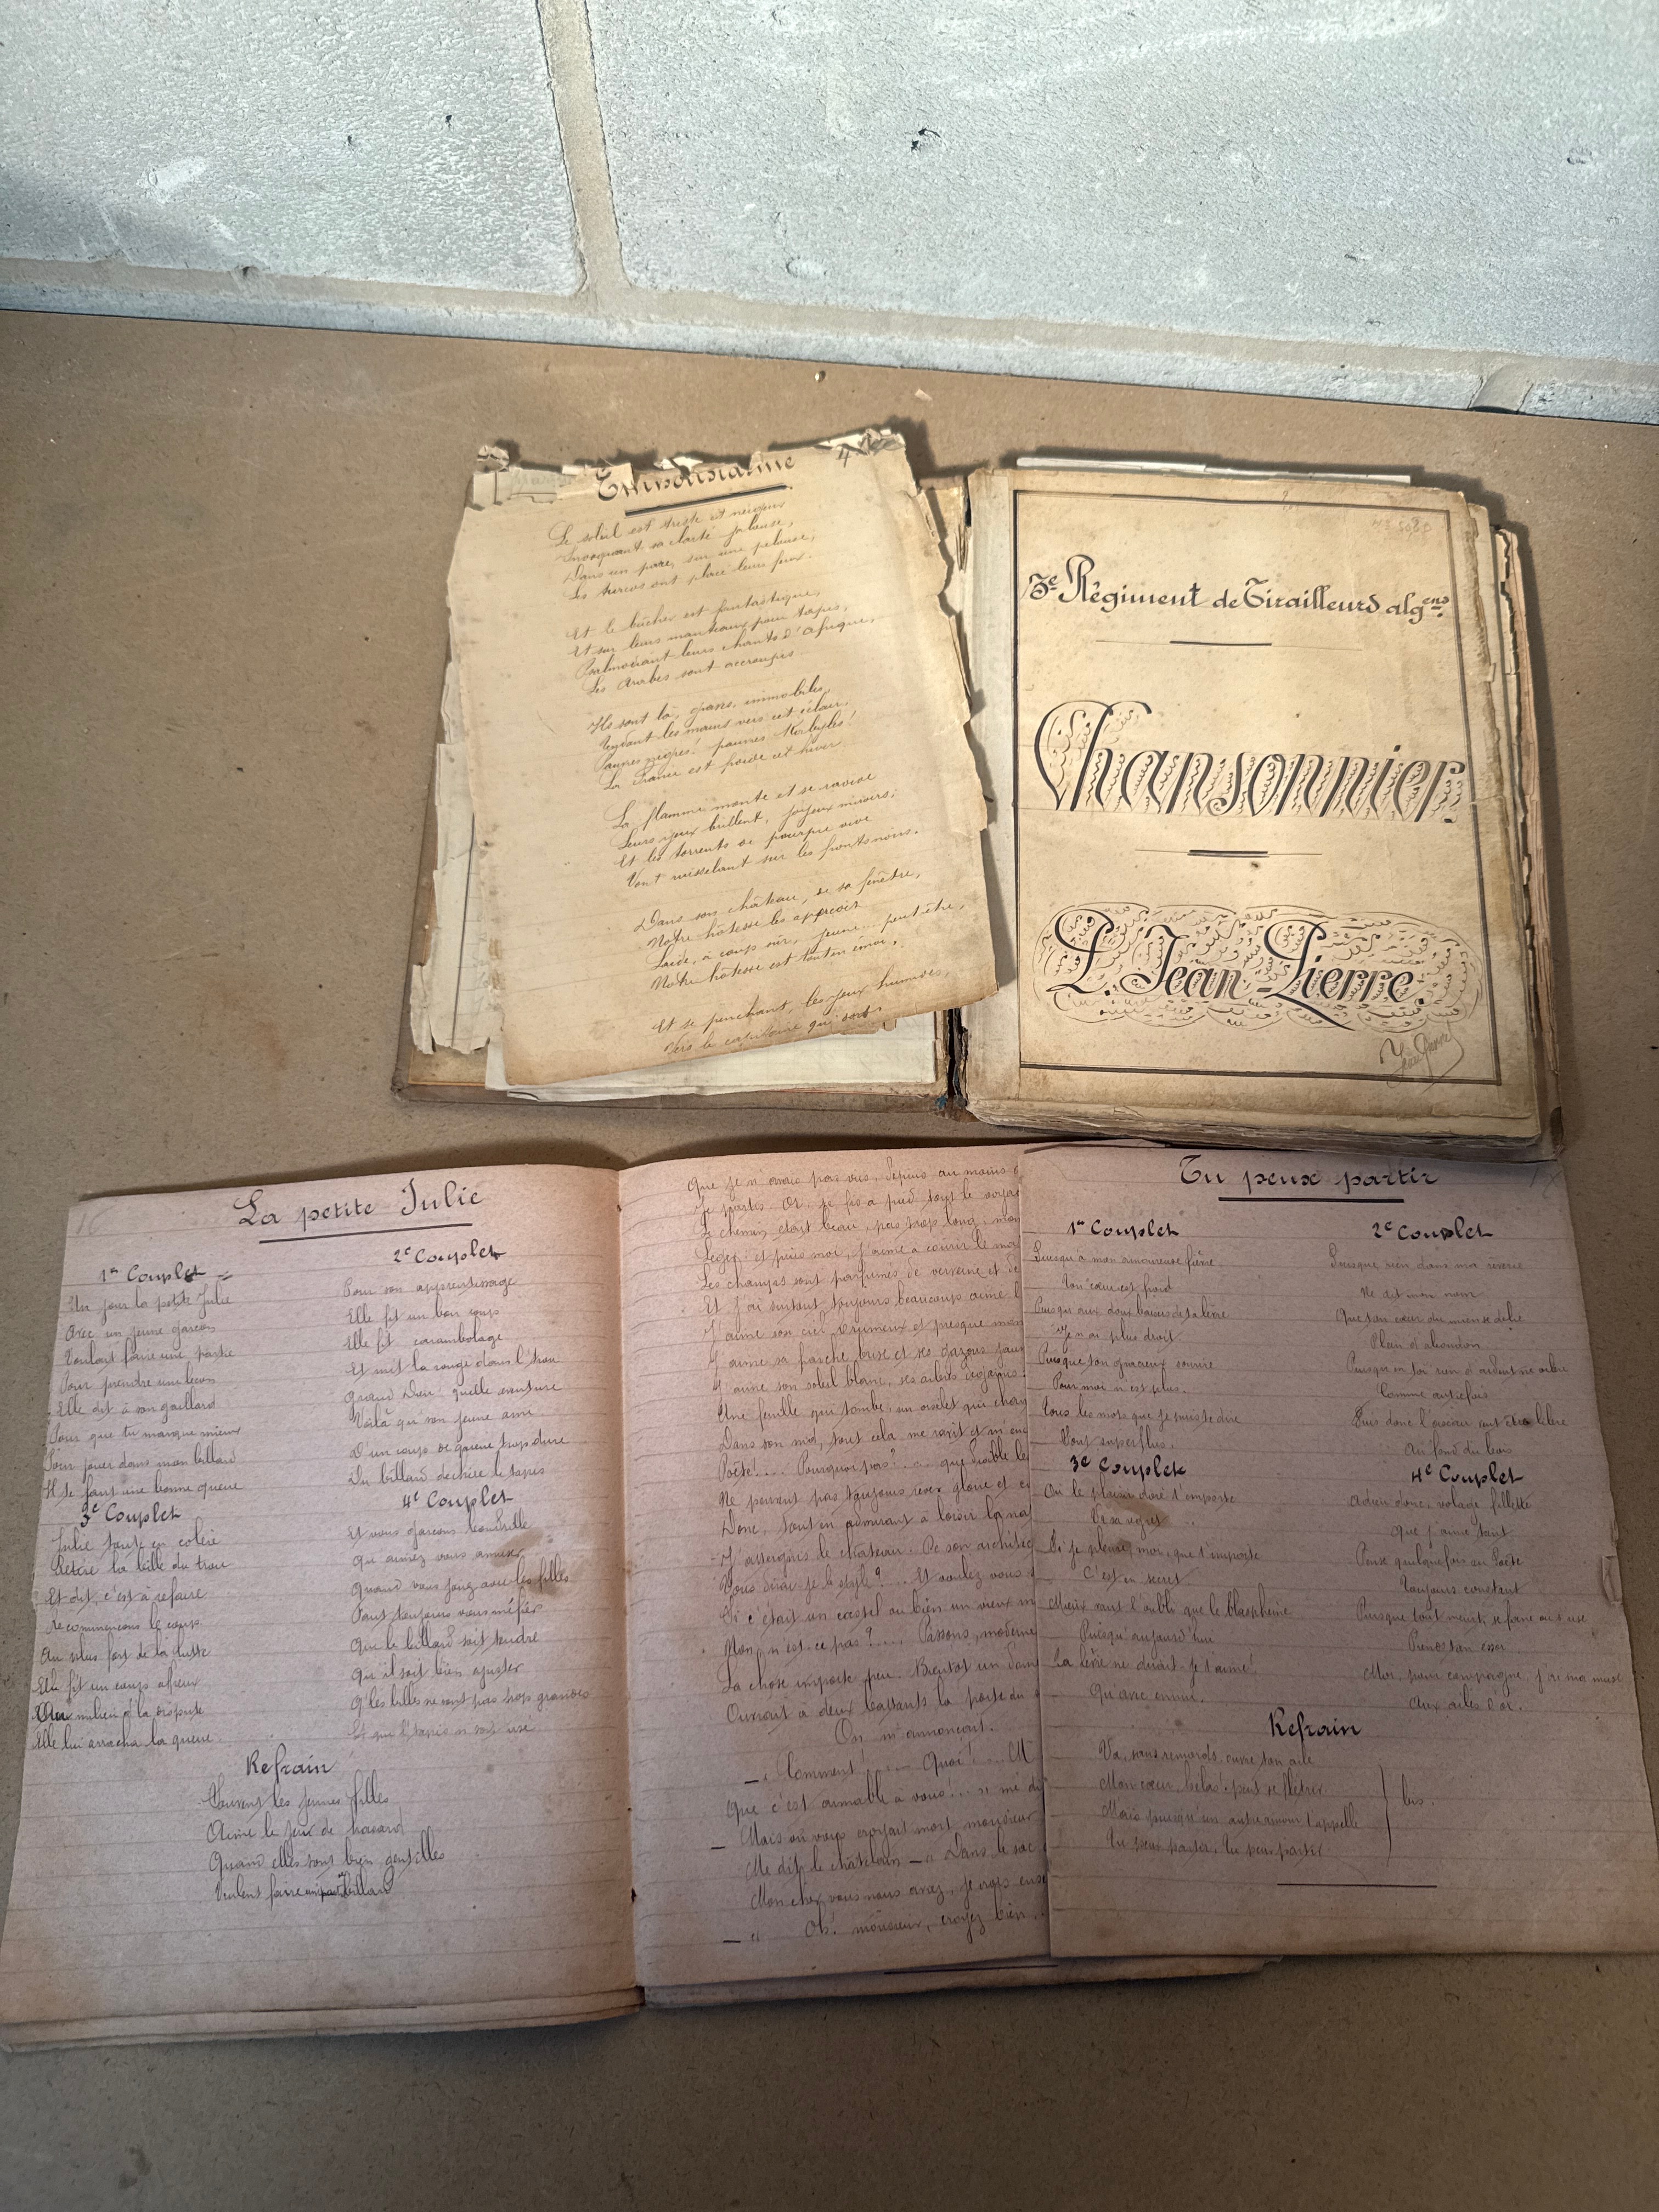 4
Le soleil est triste et neigeux
Invoquant sa clarté jalouse,
Dans un parc, sur une pelouse,
Les turcos ont placé leurs feux.
Et le bûcher est fantastique,
Et sur leurs manteaux pour tapis,
Psalmodiant leurs chants d'Afrique,
Les Arabes sont accroupis
Ils sont là, graves, immobiles,
Tendant les mains vers cet éclair.
Pauvres nègres, pauvres Kabyles!
La France est froide cet hiver
La flamme monte et se ravive
Leurs yeux brillent, joyeux miroirs;
Et les torrents de pourpre vive
Vont ruisselant sur les fronts noirs.
Dans son château, de sa fenêtre,
Notre hôtesse les aperçoit
Laide, à coup sûr, jeune... peut-être,
Notre hôtesse est tout en émoi,
Et se penchant, les yeux humides,
Vers le capitaine qui sort,
3e Régiment de Tirailleurs algens
Chansonnier.
L. Jean-Pierre.
16
La petite Julie
1er Couplet
Un jour la petite Julie
Avec un jeune garçon
Voulant faire une partie
Pour prendre une leçon
Elle dit à son gaillard
Pour que tu marque mieux
Pour jouer dans mon billard
Il te faut une bonne queue
2e Couplet
Pour son apprentissage
Elle fit un bon coup
Elle fit carambolage
Et mit la rouge dans l'trou
Grand Dieu quelle aventure
Voilà qu'son jeune ami
D'un coup de queue trop dure
Du billard déchire le tapis
3e Couplet
Julie toute en colère
Retire la bille du trou
Et dit, c'est à refaire
Recommençons le coup
Au plus fort de la lutte
Elle fit un coup affreux
Au milieu d'la dispute
Elle lui arracha la queue
4e Couplet
Et vous garçons
Qui aimez vous amuser
Quand vous jouez avec les filles
Faut toujours vous méfier
Que le billard soit tendre
Qu'il soit bien ajuster
Q'les billes ne sont pas trop grandes
Et que l'tapis n' soit usé
Refrain
Souvent les jeunes filles
Aime le jeu de hasard
Quand elles sont bien gentilles
Veulent faire billard
Que je n'avais pas vus, depuis au moins
Je partis. Or, je fis à pied tout le voyag
Le chemin était beau, pas trop long, mon
Léger: et puis moi, j'aime à courir le mo
Les champs sont parfumés de verveine et de
Et j'ai surtout toujours beaucoup aimé l
J'aime son ciel brumeux et presque mon
J'aime sa fraîche brise et ses gazons jau
J'aime son soleil blanc, ses arbres
Une feuille qui tombe; un oiselet qui chan
Dans son nid, tout cela me ravit et m'en
Poëte!... Pourquoi pas?... que diable les
Ne peuvent pas toujours rêver gloire et co
Donc, tout en admirant à loisir la na
J'atteignis le château. De son architec
Vous dirai-je le style?... Et voulez vous s
Si c'était un castel ou bien un vieux m
Non, n'est-ce pas?... Passons, moderne
La chose importe peu. Bientôt un dom
Ouvrait à deux battants la porte du
On m'annonçait.
— Comment!... — Quoi!... M
Que c'est aimable à vous!... se mi
— Mais on vous croyait mort, monsieur
Me dit le châtelain — « Dans le sac
Mon cher, vous nous avez, je crois
— « Oh! monsieur, croyez bien
Tu peux partir
1er Couplet
Puisqu'à mon amoureuse fièvre
Ton cœur est froid
Puisqu'aux doux baisers de ta lèvre
Je n'ai plus droit
Puisque ton gracieux sourire
Pour moi n'est plus.
Tous les mots que je puis te dire
Sont superflus.
2e Couplet
Puisque rien dans ma rêverie
Ne dit mon nom
Que ton cœur du mien se délie
Plein d'abandon
Puisqu'en toi rien d'ardent ne vibre
Comme autrefois
Fuis donc l'oiseau veut être libre
Au fond du bois
3e Couplet
Où le plaisir doré t'emporte
Si je pleure, moi, que t'importe
C'est en secret
Mieux vaut l'oubli que le blasphème
Puisqu'aujourd'hui
Ta lèvre ne dirait je t'aime!
Qu'avec ennui.
4e Couplet
Adieu donc, volage fillette
Que j'aime tant
Pense quelquefois au Poëte
Toujours constant
Puisque tout meurt, se fane ou s'use
Prends ton essor
Moi, pour compagne, j'ai ma muse
Aux ailes d'or.
Refrain
Va, sans remords, ouvre ton aile
Mon cœur, hélas! peut se flétrir
Mais puisqu'un autre amour t'appelle
Tu peux partir, tu peux partir.
bis.